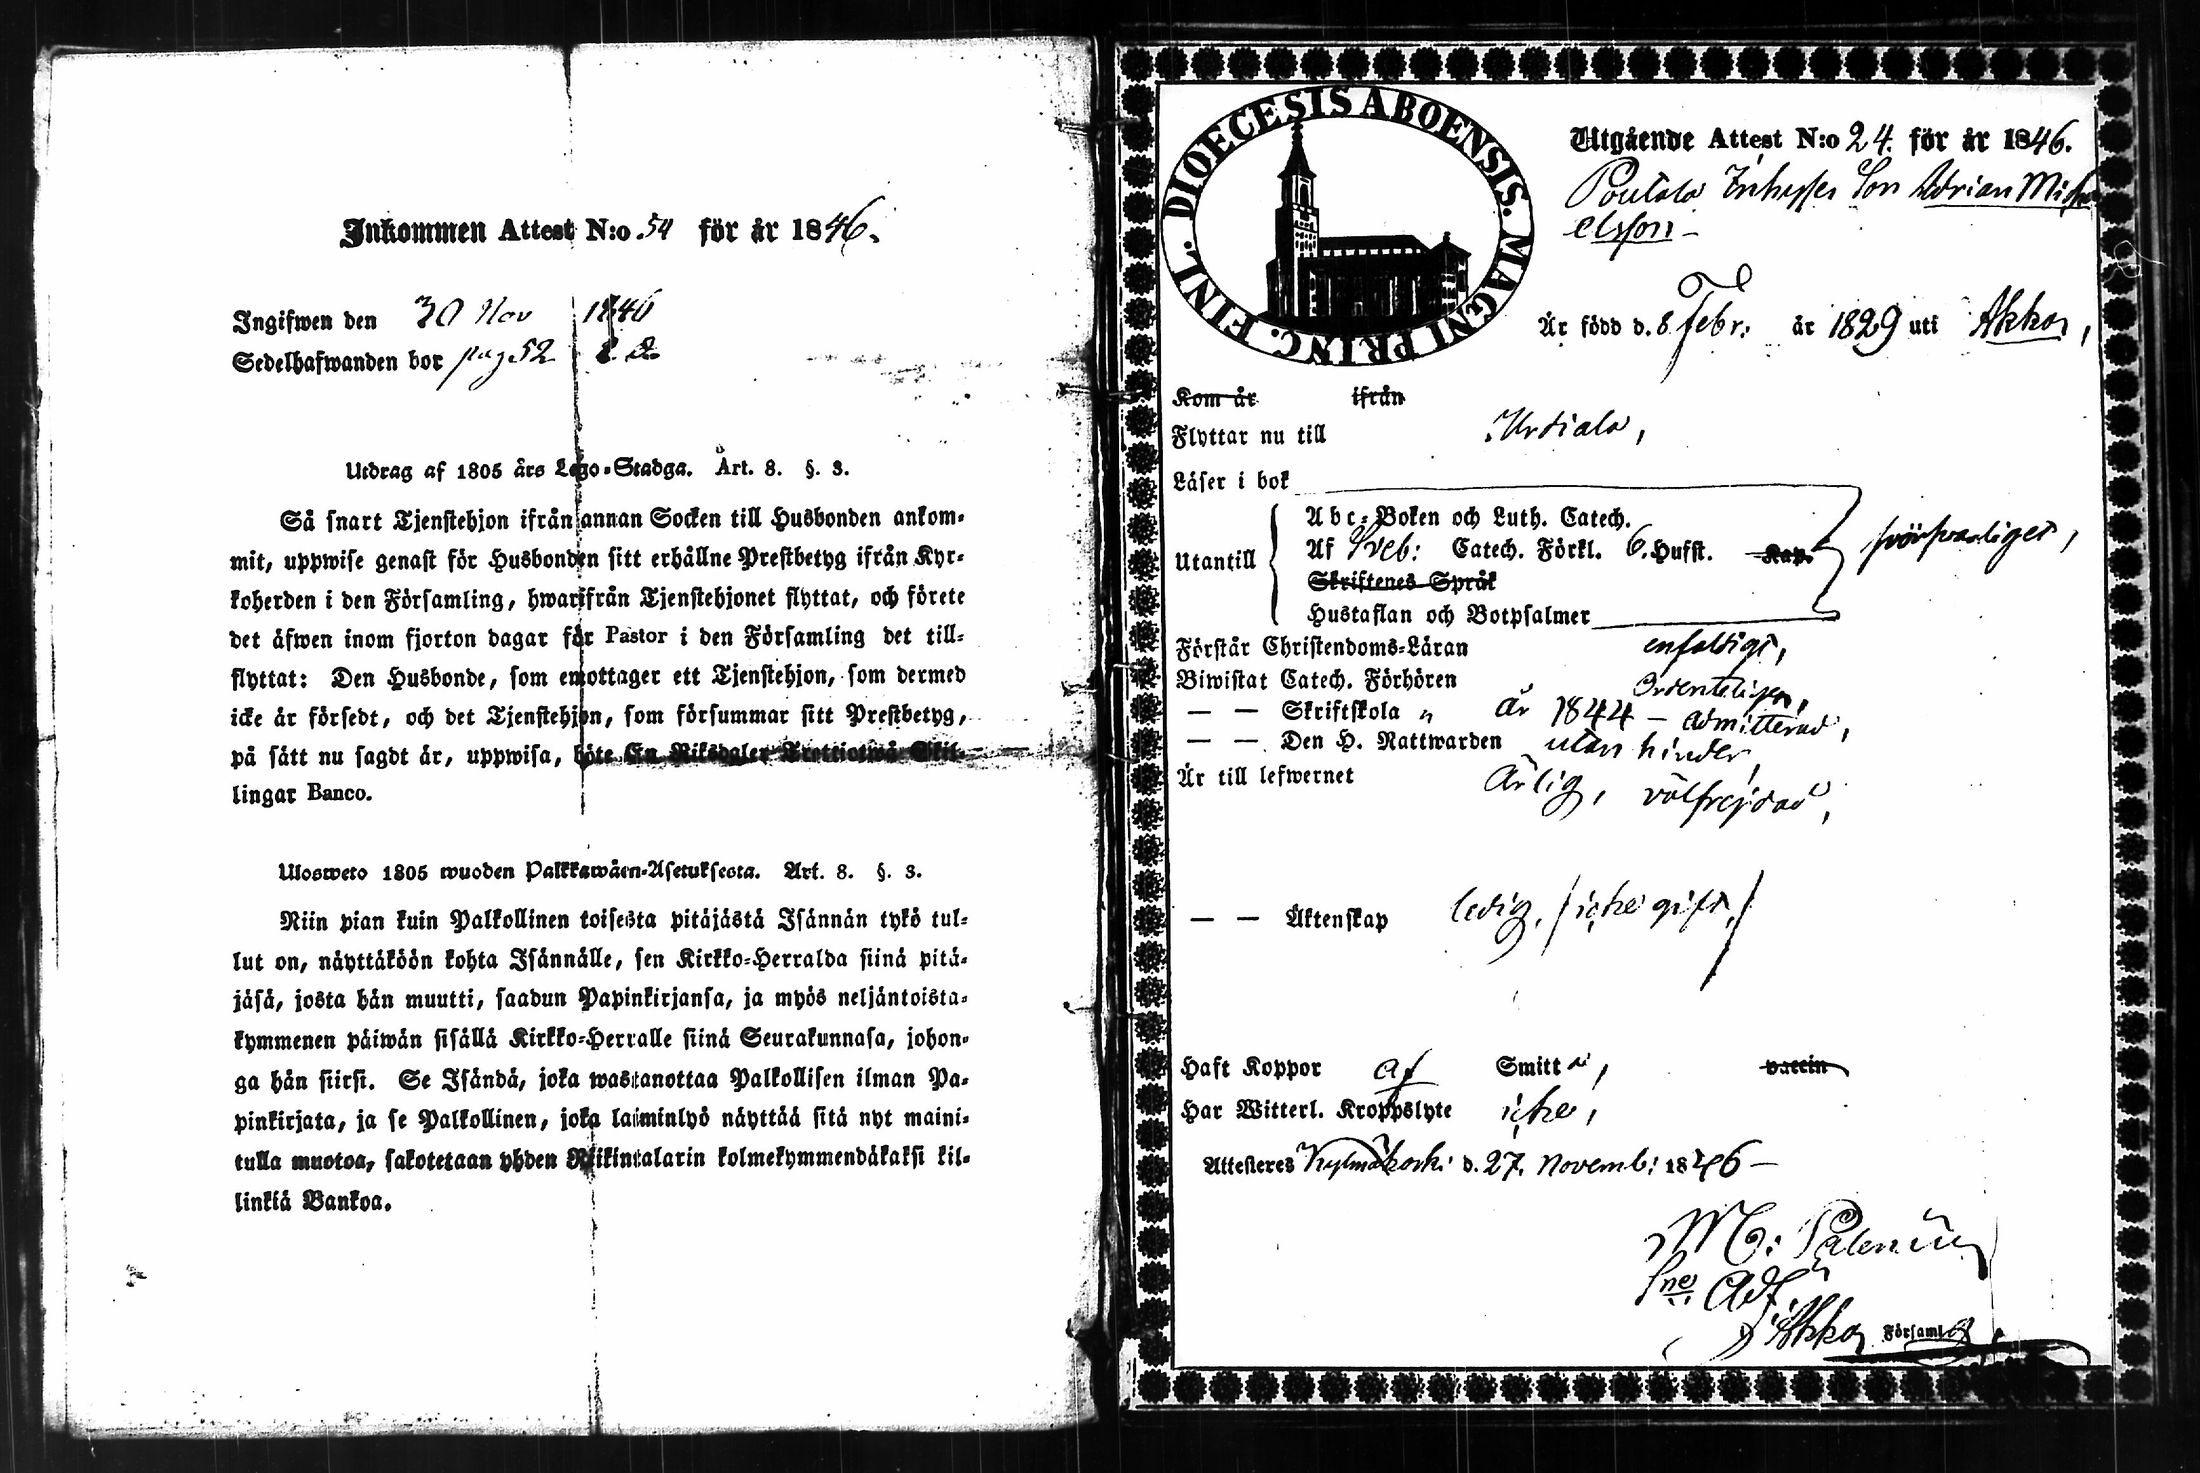 Inkommen Attest N:o 54 för år 1846.
Ingifwen den 30 Nov 1846
Sedelhafwanden bor pag 52
Utdrag af 1805 års Lego-Stadga. Art. 8. §. 3.
Så snart Tjenstehjon ifrån annan Socken till Husbonden ankom-
mit, uppwise genast för Husbonden sitt erhållne Prestbetyg ifrån Kyr-
koherden i den Församling, hwarifrån Tjenstehjonet flyttat, och förete
det äfwen inom fjorton dagar för Pastor i den Församling det till-
flyttat: Den Husbonde, som emottager ett Tjenstehjon, som dermed
icke är försedt, och det Tjenstehjon, som försummar sitt Prestbetyg,
på sätt nu sagdt är, uppwisa, böte En Riksdaler Trettiotwå Skil-
lingar Banco.
Ulosweto 1805 wuoden Palkkawäen-Asetuksesta. Art. 8. §. 3.
Niin pian kuin Palkollinen toisesta pitäjästä Isännän tykö tul-
lut on, näyttäköön kohta Isännälle, sen Kirkko-Herralda siinä pitä-
jäsä, josta hän muutti, saadun Papinkirjansa, ja myös neljäntoista-
kymmenen päiwän sisällä Kirkko-Herralle siinä Seurakunnasa, johon-
ga hän siirsi. Se Isändä, joka wastanottaa Palkollisen ilman Pa-
pinkirjata, ja se Palkollinen, joka laiminlyö näyttää sitä nyt maini-
tulla muotoa, sakotetaan yhden Riikintalarin kolmekymmendäkaksi kil-
linkiä Bankoa.
DIOECESIS ABOENSIS. MAGNI PRINC. FINL.
Utgående Attest N:o 24. för år 1846.
Poutala Inhyses Son Adrian Mich
elsson
Är född d. 8 Febr: år 1829 uti Akkas,
Kom år ifrån
Flyttar nu till Urdiala,
Läser i bok
Abc-Boken och Luth. Catech.
Utantill Af Sveb: Catech. Förkl. 6. Hufst. Kap. försvarligen,
Skriftenes Språk
Hustaflan och Botpsalmer
Förstår Christendoms-Läran enfaldigt,
Biwistat Catech. Förhören Ordenteligen,
— — Skriftskola " år 1844 – admitterad,
— — Den H. Nattwarden utan hinder,
Är till lefwernet Ärlig, välfrejdad,
— — Äktenskap ledig, /icke gift,/
Haft Koppor af Smitta, vaccin
Har Witterl. Kroppslyte icke,
Attesteres Kylmäkoski d. 27. Novemb: 1846 –
M: Palenius
Sne Adj.
i Akkas Församlg.